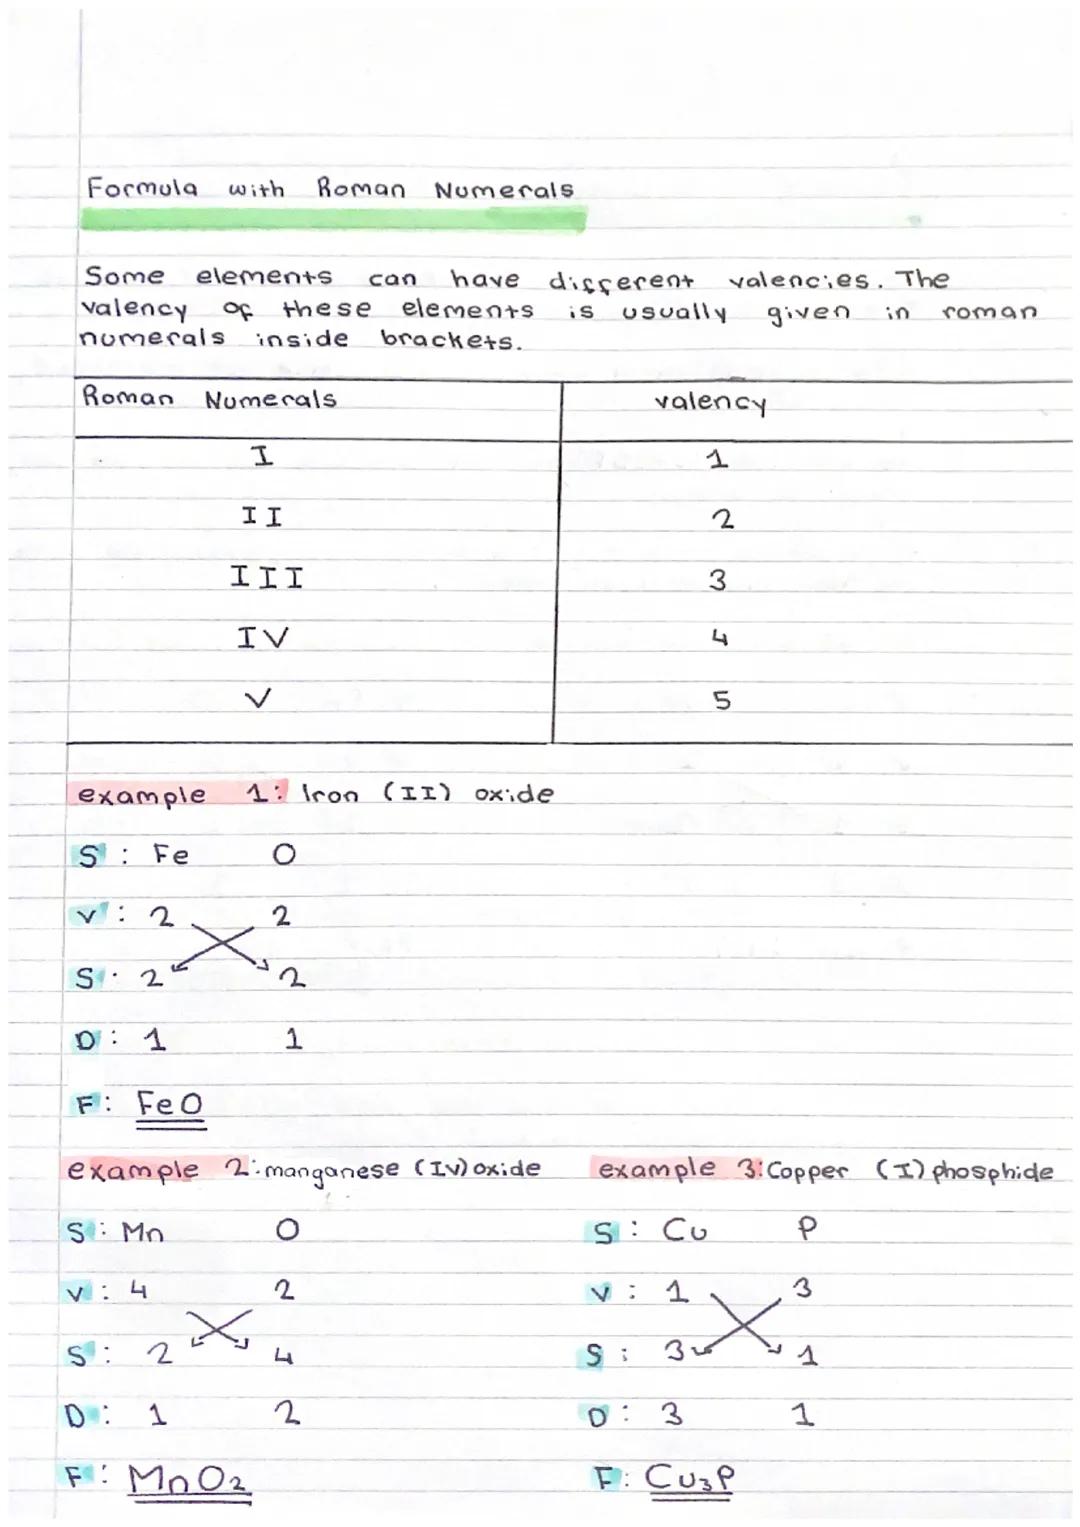 Formula with Roman Numerals
Some elements can have different valencies. The
valency of these elements is usually given in roman
numerals inside brackets.
Roman Numerals valency
I 1
II 2
III 3
IV 4
V 5
example 1: Iron (II) oxide
S : Fe O
V : 2 2
S : 2 2
D : 1 1
F : FeO
example 2: manganese (IV) oxide example 3: Copper (I) phosphide
S : Mn O S : Cu P
V : 4 2 V : 1 3
S : 2 4 S : 3 1
D : 1 2 D : 3 1
F : MnO2 F : Cu3P